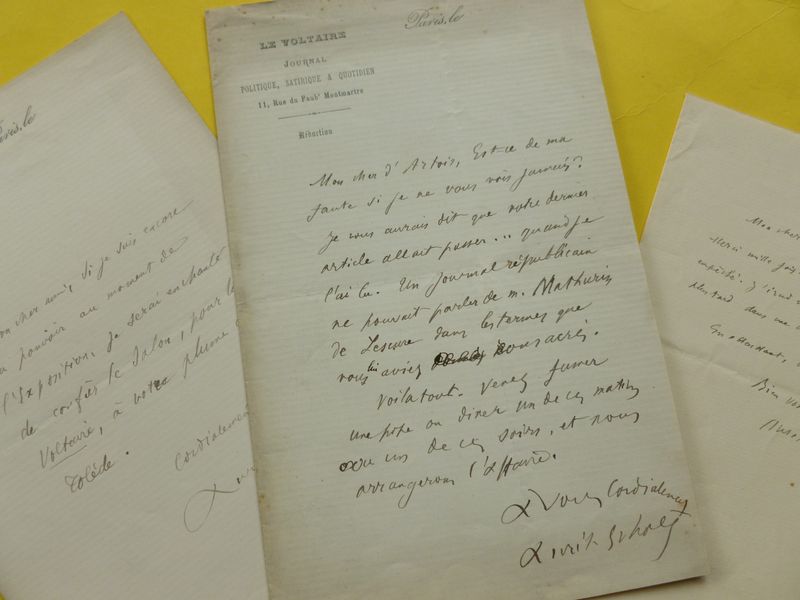 Paris, le
on cher ami, si je suis encore
au pouvoir au moment de
l'Exposition, je serai enchanté
de confier le Salon, pour le
Voltaire, à votre plume
Tolède.
Cordialement
Paris, le
LE VOLTAIRE
JOURNAL
POLITIQUE, SATIRIQUE & QUOTIDIEN
11, Rue du Faubg Montmartre
Rédaction
Mon cher d'Artois, Est-ce de ma
faute si je ne vous vois jamais?
Je vous aurais dit que votre dernier
article allait passer... quand je
l'ai lu. Un journal républicain
ne pouvait parler de M. Mathurin
de Lescure dans les termes que
vous lui aviez consacrés.
Voilà tout. Venez fumer
une pipe ou diner un de ces matins
ou un de ces soirs, et nous
arrangerons l'affaire.
A vous Cordialement
Aurélien Scholl
Mon cher
Merci mille fois
empêché.
plus tard dans une
En attendant,
Bien